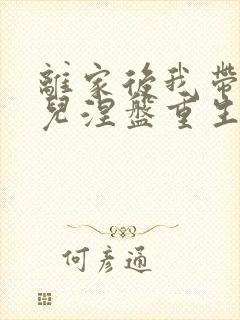 離家後我帶
兒涅盤重生
何彥通